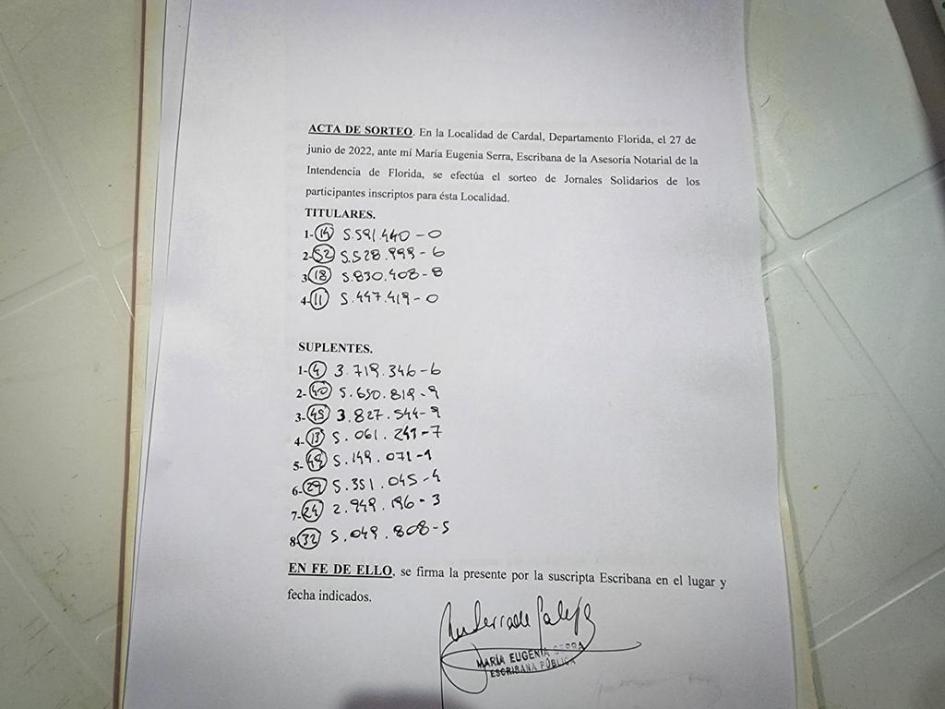 ACTA DE SORTEO. En la Localidad de Cardal, Departamento Florida, el 27 de
junio de 2022, ante mí María Eugenia Serra, Escribana de la Asesoría Notarial de la
Intendencia de Florida, se efectúa el sorteo de Jornales Solidarios de los
participantes inscriptos para ésta Localidad.
TITULARES.
1- 14 5.591.440-0
2- 52 5.528.999-6
3- 18 5.830.408-8
4- 11 5.447.419-0
SUPLENTES.
1- 4 3.719.346-6
2- 40 5.650.819-9
3- 45 3.827.544-9
4- 13 5.061.241-7
5- 49 5.149.071-1
6- 29 5.351.045-4
7- 24 2.949.196-3
8- 32 5.049.808-5
EN FE DE ELLO, se firma la presente por la suscripta Escribana en el lugar y
fecha indicados.
MARÍA EUGENIA SERRA
ESCRIBANA PÚBLICA